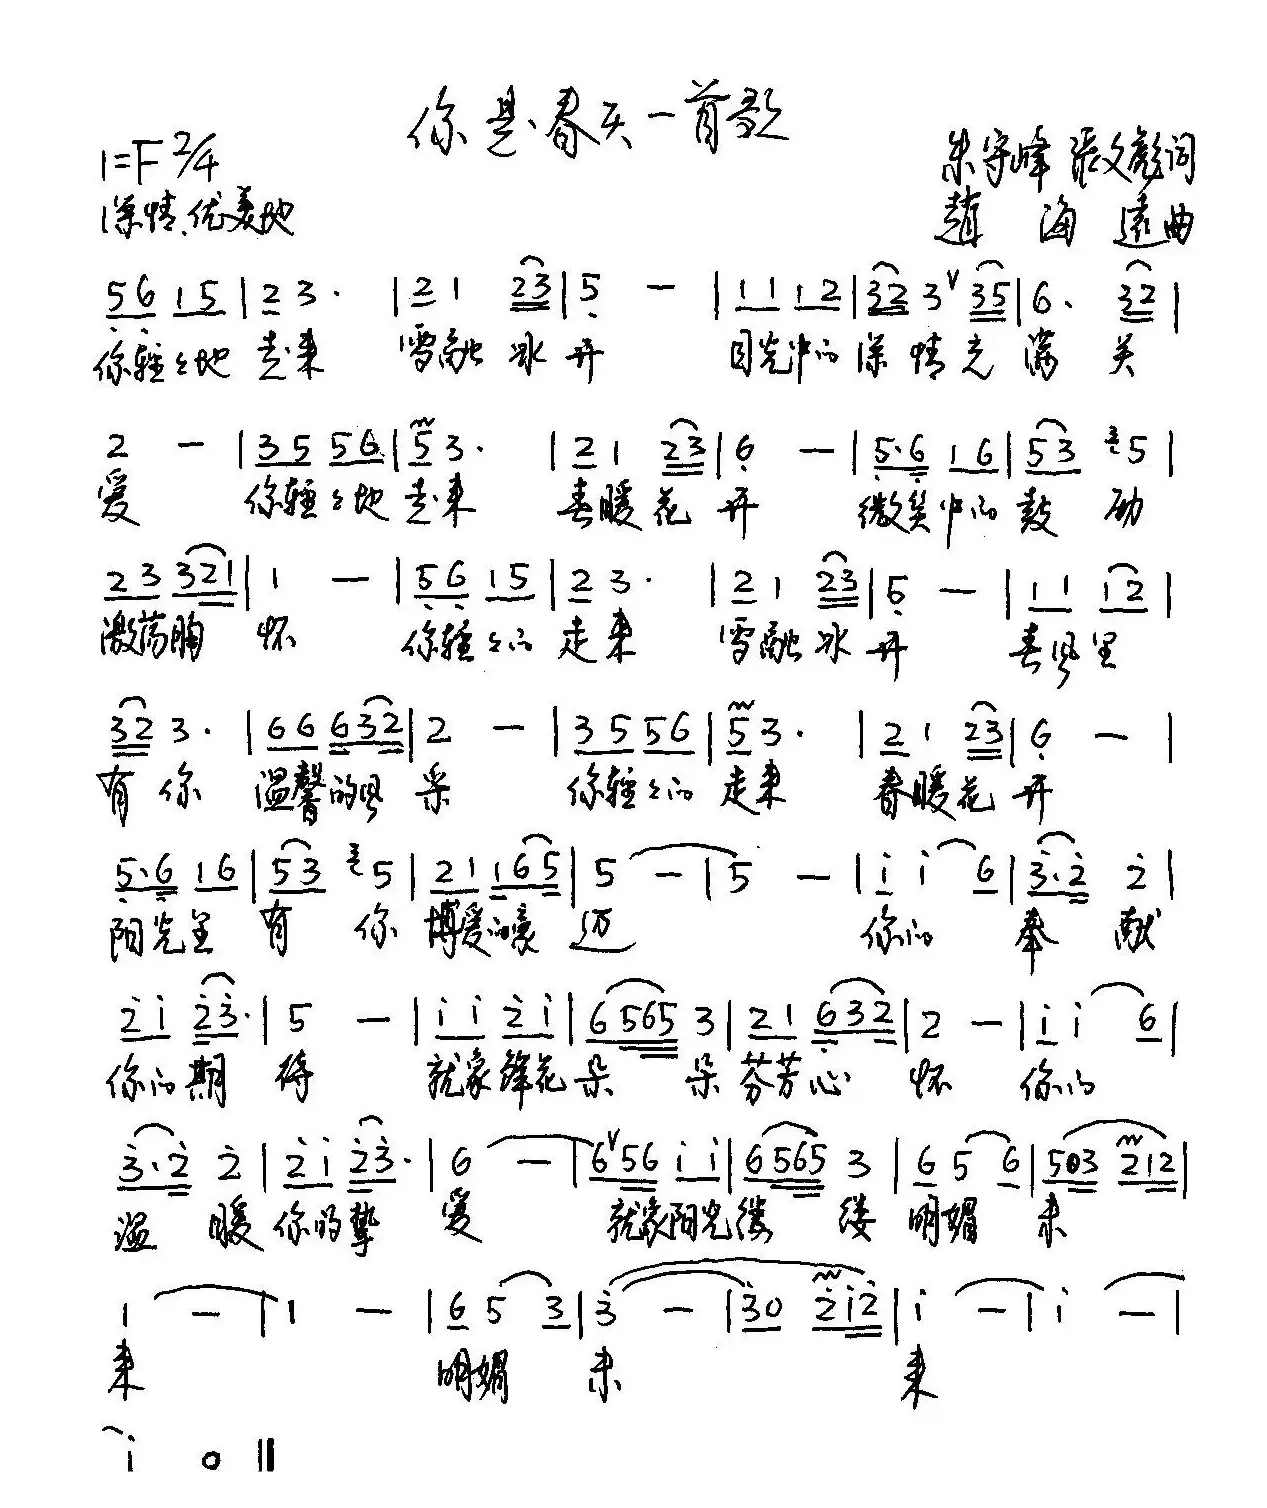 你是春天一首歌
1=F 2/4
朱守峰 张文彪词
深情、优美地
趙海遠曲
5 6 1 5 | 2 3 · | 2 1 2 3 | 5 — | 1 1 1 2 | 3 2 3 V 3 5 | 6 · 3 2 |
你轻々地 走来 雪融冰开 目光中的深情充满关
2 — | 3 5 5 6 | 5 3 · | 2 1 2 3 | 6 — | 5 · 6 1 6 | 5 3 3 5 |
爱 你轻々地 走来 春暖花开 微笑中的鼓励
2 3 3 2 1 | 1 — | 5 6 1 5 | 2 3 · | 2 1 2 3 | 5 — | 1 1 1 2 |
激荡胸怀 你轻々的 走来 雪融冰开 春风里
3 2 3 · | 6 6 6 3 2 | 2 — | 3 5 5 6 | 5 3 · | 2 1 2 3 | 6 — |
有你 温馨的风采 你轻々的 走来 春暖花开
5 · 6 1 6 | 5 3 3 5 | 2 1 1 6 5 | 5 — | 5 — | i i 6 | 3 · 2 2 |
阳光里 有 你 博爱的豪迈 你的 奉 献
2 i 2 3 · | 5 — | i i 2 i | 6 5 6 5 3 | 2 1 6 3 2 | 2 — | i i 6 |
你的期待 就象锋花朵 朵芬芳心怀 你的
3 · 2 2 | 2 i 2 3 · | 6 — | 6 V 5 6 i i | 6 5 6 5 3 | 6 5 6 | 5 0 3 2 1 2 |
温 暖你的挚 爱 就象阳光缕 缕 明媚未
1 — | 1 — | 6 5 3 | 3 — | 3 0 2 i 2 | i — | i — |
来 明媚 未 来
i 0 ‖